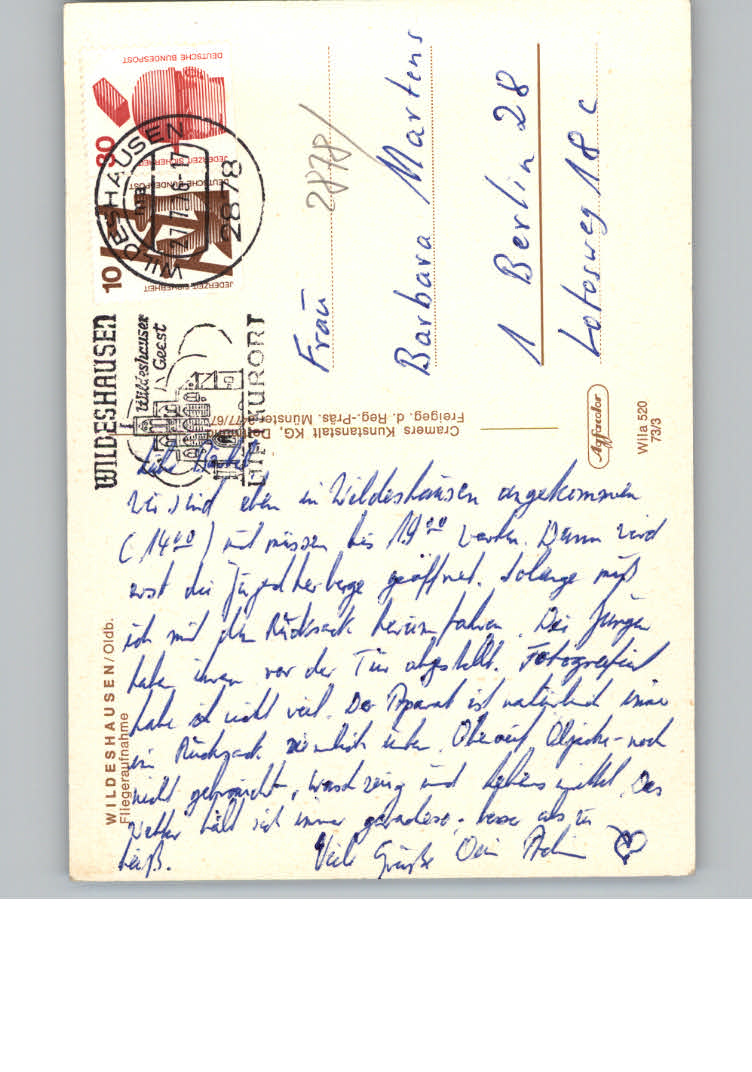 DEUTSCHE BUNDESPOST
JEDERZEIT SICHERHEIT
30
DEUTSCHE BUNDESPOST
JEDERZEIT SICHERHEIT
10
WILDESHAUSEN
27.7.76-17
2878
WILDESHAUSEN
Wildeshauser
Geest
LUFTKURORT
2878/
Frau
Barbara Martens
1 Berlin 28
Lotosweg 18 c
Cramers Kunstanstalt KG, Dortmund
Freigeg. d. Reg.-Präs. Münster
Agfacolor
Wila 520
73/3
WILDESHAUSEN/Oldb.
Fliegeraufnahme
Liebe
Wir sind eben in Wildeshausen angekommen
(14 00) und müssen bis 19 00 warten. Dann wird
erst die Jugendherberge geöffnet. Solange muß
ich mit dem Rucksack herumfahren. Die Jungen
haben ihren vor der Tür abgestellt. Fotografiert
habe ich nicht viel. Der Apparat ist natürlich immer
im Rucksack ziemlich unten. Objektiv - noch
nicht gebraucht, Waschzeug und Lebensmittel. Das
Wetter hält sich immer geradeso, besser als zu
heiß. Viele Grüße Dein Achim